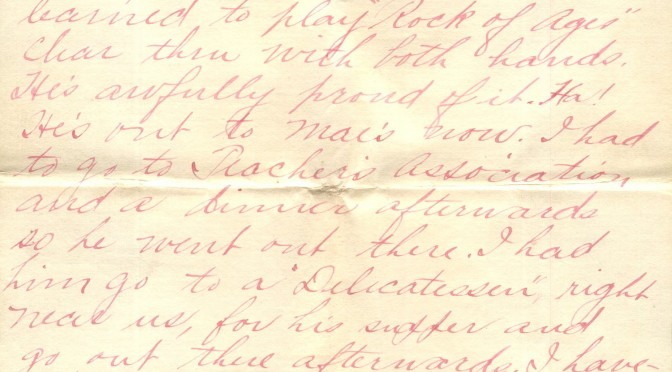 learned to play "Rock of Ages"
clear thru with both hands.
He's awfully proud of it. Ha!
He's out to Mae's now. I had
to go to Teacher's Association
and a dinner afterwards
so he went out there. I had
him go to a "Delicatessen", right
near us, for his supper and
go out there afterwards. I have-